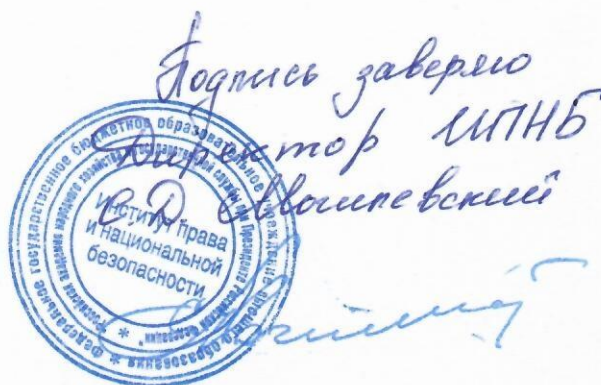 Подпись заверяю
Директор ИПНБ
С.Д Могилевский
Федеральное государственное бюджетное образовательное учреждение высшего образования *
Российская академия народного хозяйства и государственной службы при Президенте Российской Федерации" *
Институт права
и национальной
безопасности